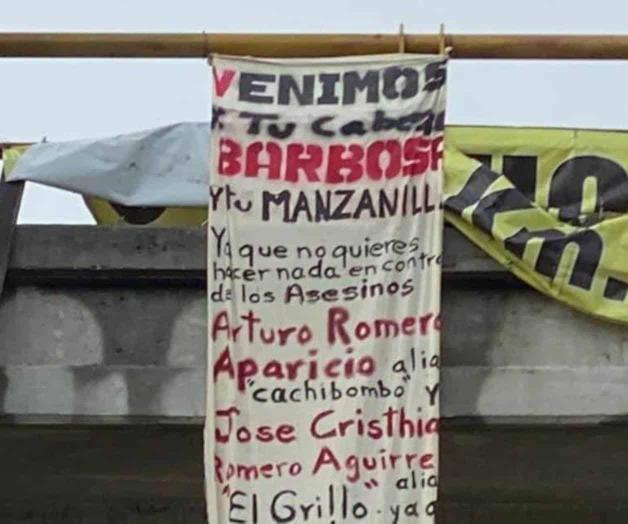 VENIMOS
X Tu Cabeza
BARBOSA
Y tu MANZANILL
Ya que no quieres
hacer nada en contra
de los Asesinos
Arturo Romero
Aparicio alia
"cachibombo" Y
Jose Cristhia
Romero Aguirre
alia
"El Grillo" ya
m.